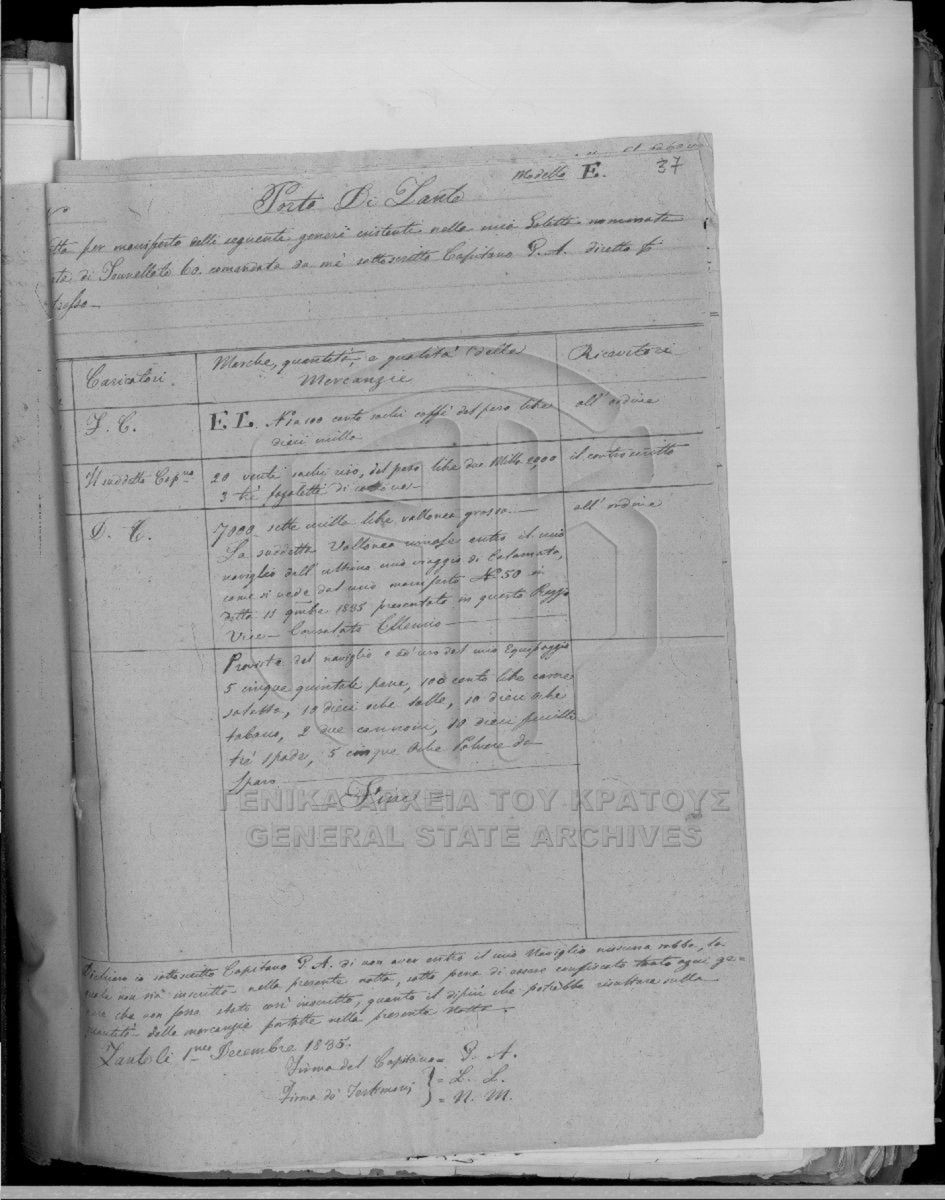 Modello E. 37
Porto Di Zante
per manifesto delli seguenti generi esistenti nella mia Goletta nominata
di Tonnellate 60. comandata da me sottoscritto Capitano P. A. diretto p
Caricatori.
Marche, quantità, e qualità delle
Mercanzie
Ricevitori
J. C.
EL. N 100 cento sachi caffè del peso libe
dieci milla
all' ordine
Il suddetto Cap.no
20 venti sachi riso, del peso libe due Milla 2000
3 trè fagoletti di
il controscritto
D. C.
7000 sette milla libe vallonea grossa.
La suddetta Vallonea rimase entro il mio
naviglio dall' ultimo mio viaggio di Calamata,
come si vede dal mio manifesto No. 50 in
data 15 9mbre 1835 presentato in questo Reggio
Vice-Consolato Ellenico
all' ordine
Provista del naviglio e ad' uso del mio Equipaggio
5 cinque quintali pane, 100 cento libe carne
salata, 10 dieci oche salle, 10 dieci oche
tabaco, 2 due cannoni, 10 dieci fucilli
trè spade, 5 cinque oche Polvere da
Sparo
Fine
ΓΕΝΙΚΑ ΑΡΧΕΙΑ ΤΟΥ ΚΡΑΤΟΥΣ
GENERAL STATE ARCHIVES
Dichiaro io sottoscritto Capitano P. A. di non aver entro il mio Naviglio nissuna robba, la
quale non sia inscritta nella presente notta, sotto pena di essere confiscato tanto ogni ge=
nere che non fosse stato così inscritto, quanto il dipiù che potrebbe risultare sulla
quantità delle mercanzie portate nella presente Notta.
Zante li 1.mo Decembre 1835.
Firma del Capitano = P. A.
Firma de' Testimonj = L. L.
= N. M.